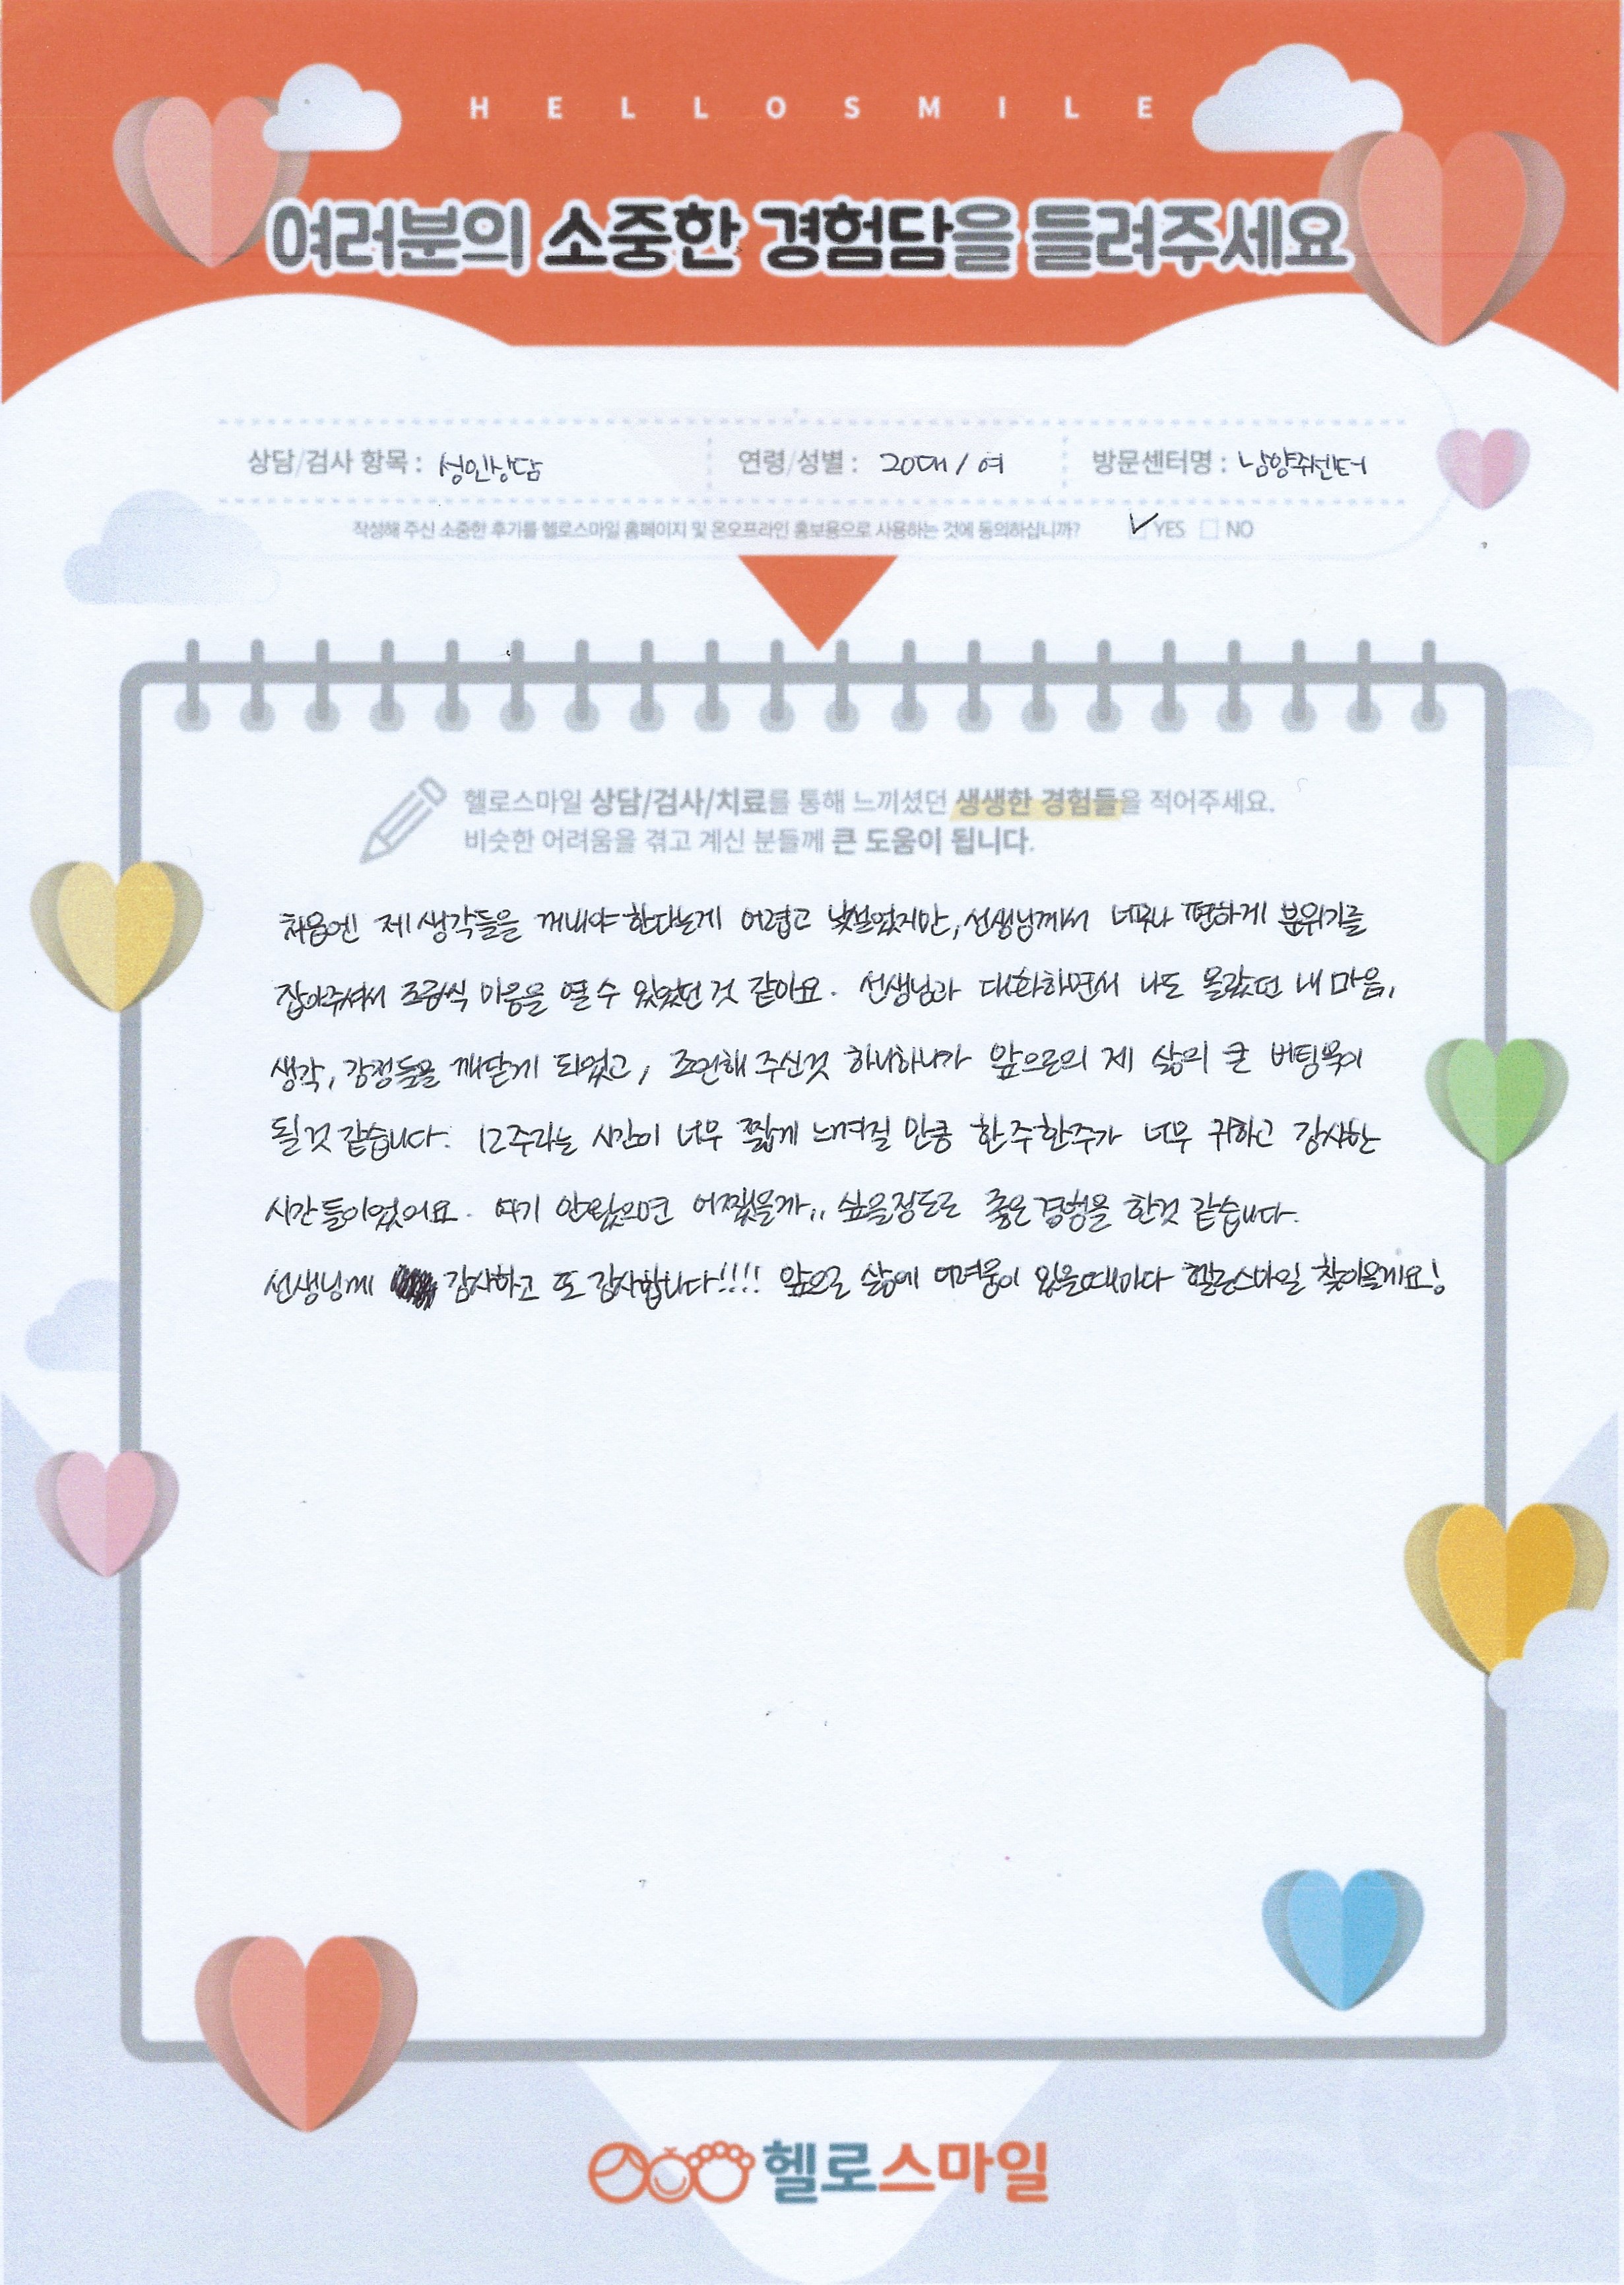 HELLOSMILE
여러분의 소중한 경험담을 들려주세요
상담/검사 항목 : 성인상담 연령/성별 : 20대 / 여 방문센터명 : 남양주센터
작성해 주신 소중한 후기를 헬로스마일 홈페이지 및 온오프라인 홍보용으로 사용하는 것에 동의하십니까? YES NO
헬로스마일 상담/검사/치료를 통해 느끼셨던 생생한 경험들을 적어주세요.
비슷한 어려움을 겪고 계신 분들께 큰 도움이 됩니다.
처음엔 제 생각들을 꺼내야 한다는게 어렵고 낯설었지만, 선생님께서 너무나 편하게 분위기를
잡아주셔서 조금씩 마음을 열 수 있었던 것 같아요. 선생님과 대화하면서 나도 몰랐던 내 마음,
생각, 감정들을 깨닫게 되었고, 조언해 주신것 하나하나가 앞으로의 제 삶의 큰 버팀목이
될것 같습니다. 12주라는 시간이 너무 짧게 느껴질 만큼 한주한주가 너무 귀하고 감사한
시간들이었어요. 여기 안왔으면 어쨌을까.. 싶을정도로 좋은경험을 한것 같습니다.
선생님께 감사하고 또 감사합니다!!!! 앞으로 삶에 어려움이 있을때마다 헬로스마일 찾아올게요!
헬로스마일